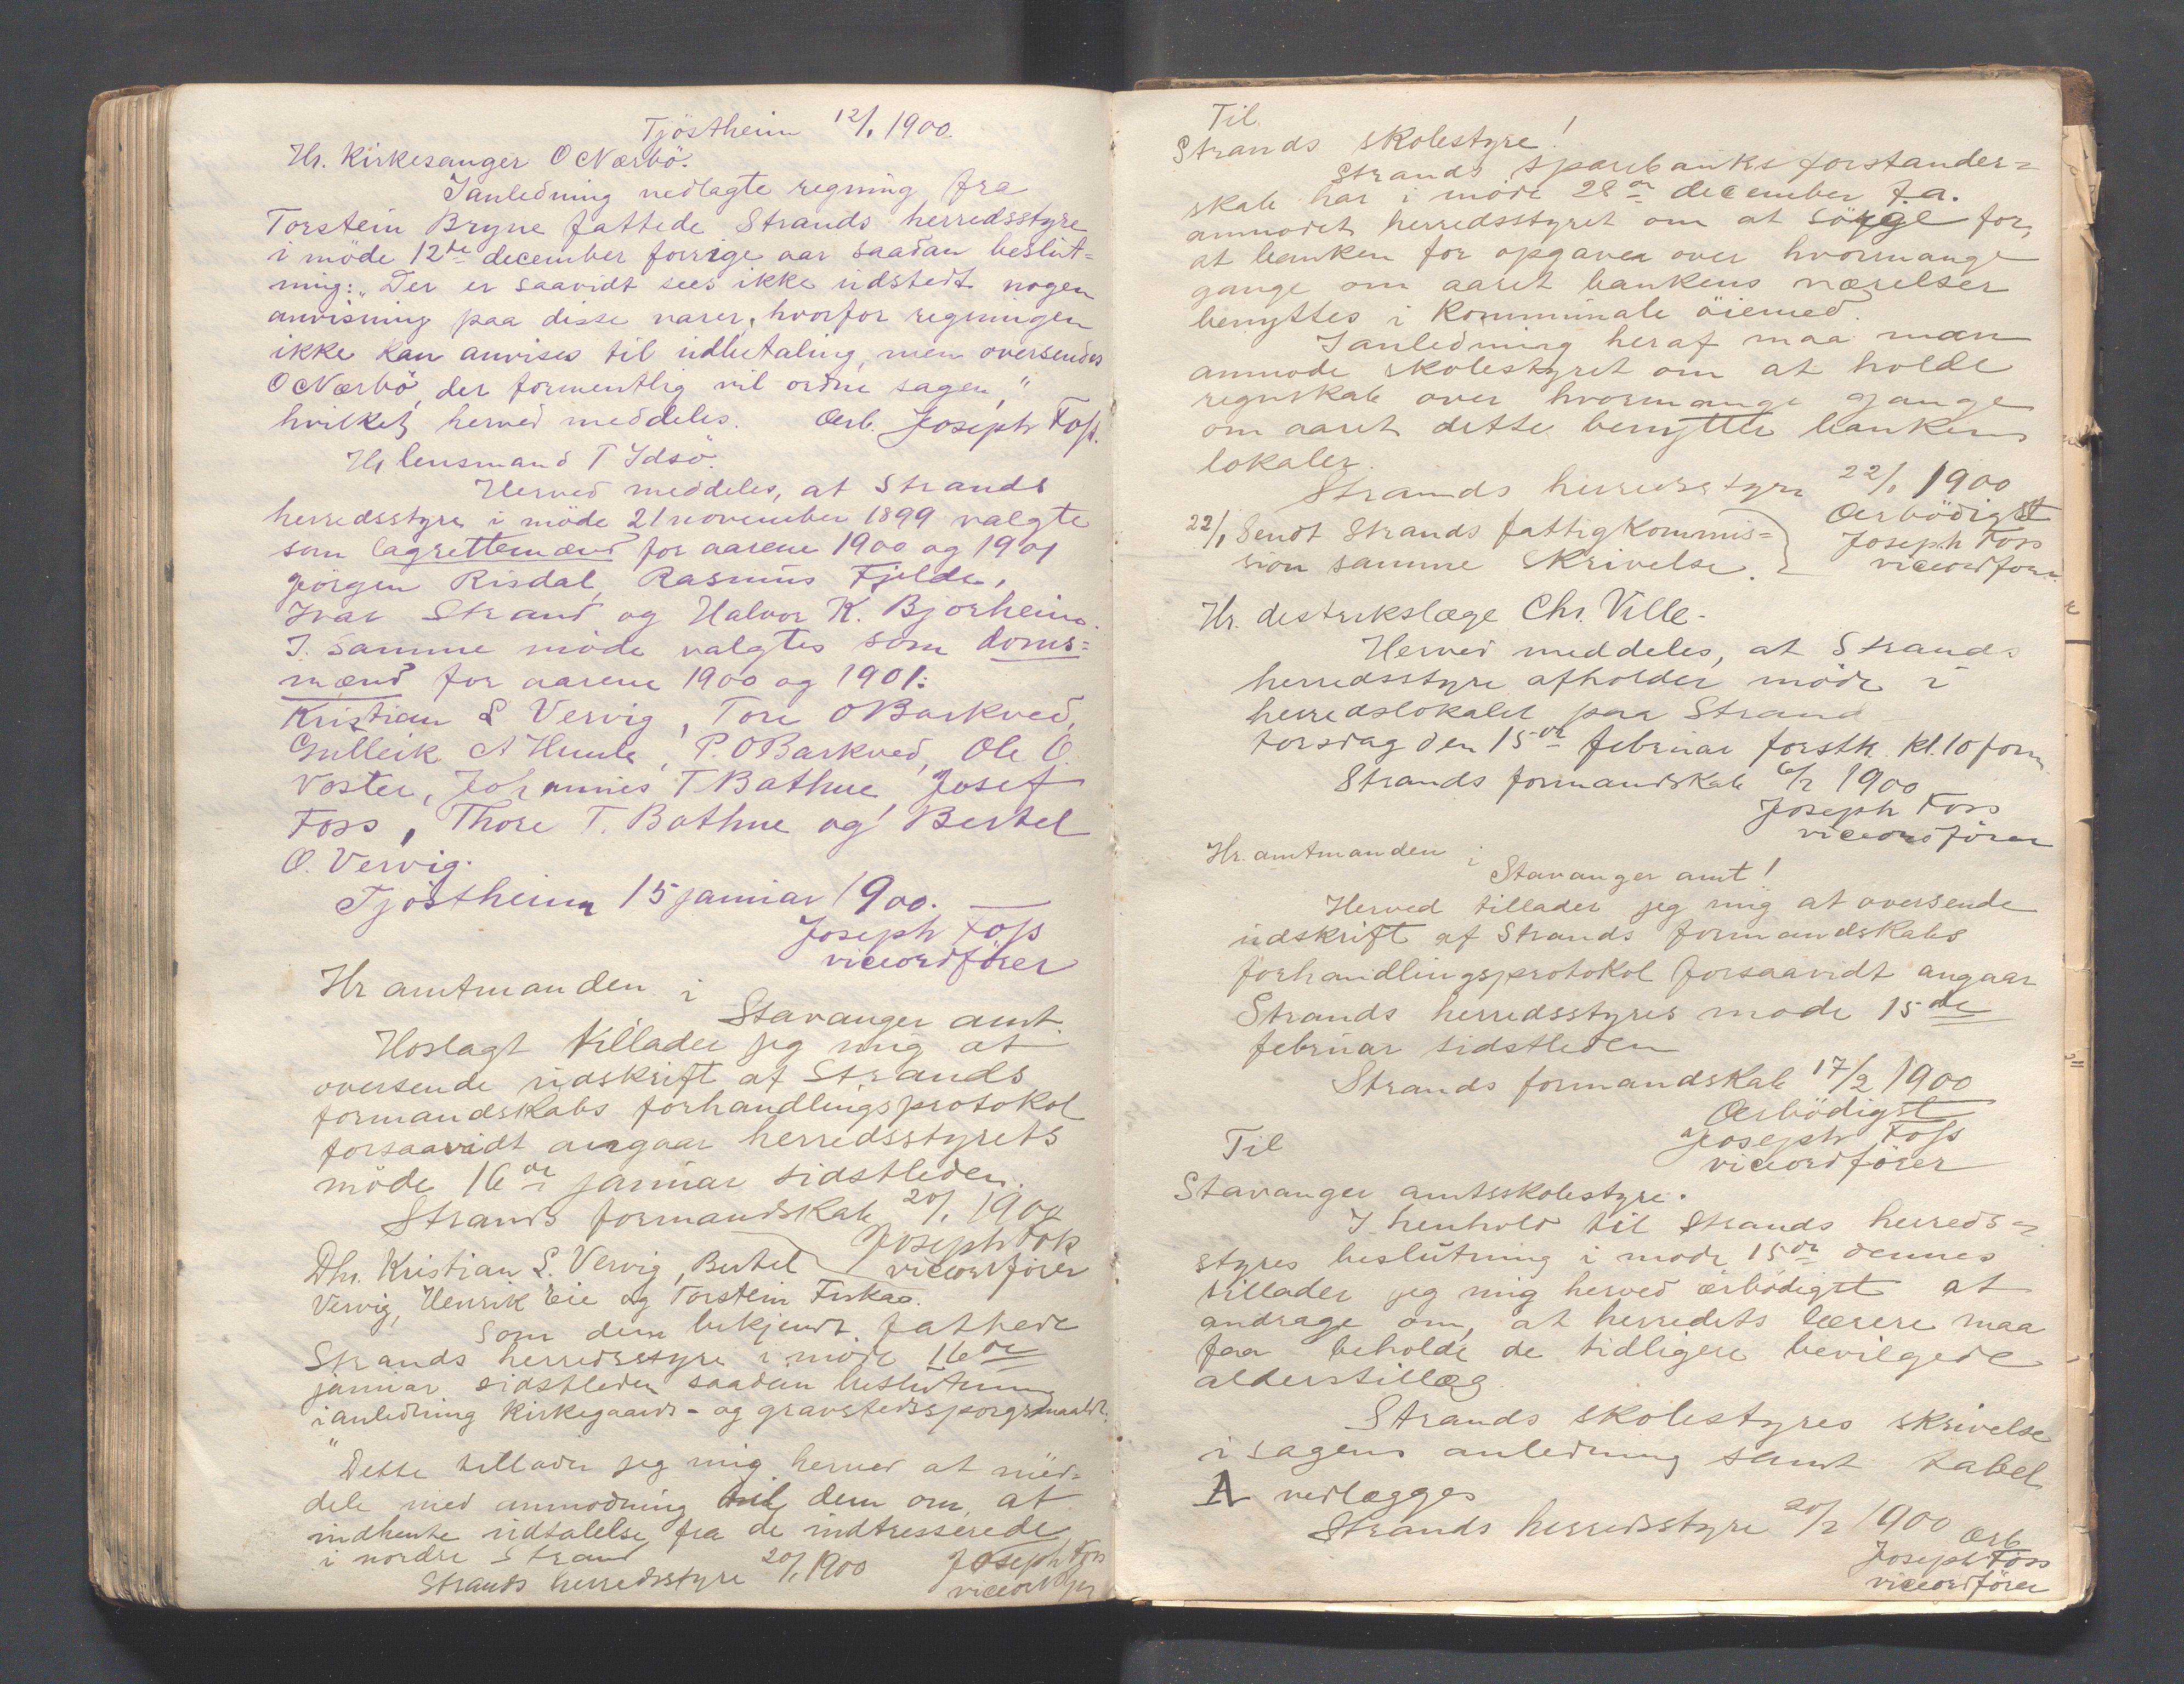 Tjöstheim 12/1 1900.
Hr. Kirkesanger O Nærbö.
Ianledning vedlagte regning fra
Torstein Bryne fattede Strands herredsstyre
i möde 12te december forrige aar saadan beslut=
ning: „Der er saavidt sees ikke udstedt nogen
anvisning paa disse varer, hvorfor regningen
ikke kan anvises til udbetaling, men oversendes
O Nærbö, der formentlig vil ordne sagen,"
hvilket herved meddeles. Ærb. Joseph Foss.
Hr lensmand T Idsö.
Herved meddeles, at Strands
herredsstyre i möde 21 november 1899 valgte
som lagrettemænd for aarene 1900 og 1901
Jörgen Risdal, Rasmus Fjelde,
Ivar Strand og Halvor K. Bjorheim.
I samme möde valgtes som doms=
mænd for aarene 1900 og 1901:
Kristian S Vervig, Tore O Barkved,
Gulleik A Humle, P. O Barkved, Ole O.
Voster, Johannes T Bathne, Josef
Foss, Thore T. Bathne og Bertel
O. Vervig.
Tjöstheim 15 januar 1900.
Joseph Foss
viceordförer
Hr amtmanden i
Stavanger amt.
Hoslagt tillader jeg mig at
oversende udskrift af Strands
formandskabs forhandlingsprotokol
forsaavidt angaar herredsstyrets
möde 16de januar sidstleden.
Strands formandskab 20/1 1900
Joseph Foss
viceordförer
Dhr. Kristian S. Vervig, Bertel
Vervig, Henrik Eie og Torstein Fiskaa.
Som dem bekjendt fattede
Strands herredsstyre i möde 16de
januar sidstleden saadan beslutning
i anledning Kirkegaards- og gravstedsspörgsmaalet:
"
Dette tillader jeg mig herved at med=
dele med anmodning til dem om at
indhente udtalelse fra de indtresserede
i nordre Strand
Strands herredsstyre 20/1 1900 Joseph Foss
viceordförer
Til
Strands skolestyre!
Strands sparebanks forstander=
skab har i möde 28de december f.a.
anmodet herredsstyret om at sörge for,
at banken for opgaver over hvormange
gange om aaret bankens værelser
benyttes i Kommunale öiemed.
Ianledning heraf maa man
anmode skolestyret om at holde
regnskab over hvormange gange
om aaret dette benytter bankens
lokaler.
Strands herredsstyre 22/1 1900
Ærbödigst
Joseph Foss
viceordförer
22/1 Sendt Strands fattigkommis=
sion samme skrivelse.
Hr. distriktslæge Chr. Ville.
Herved meddeles, at Strands
herredsstyre afholder möde i
herredslokalet paa Strand
torsdag den 15de februar forstk. kl. 10 form
Strands formandskab 6/2 1900
Joseph Foss
viceordförer
Hr. amtmanden i
Stavanger amt!
Herved tillader jeg mig at oversende
udskrift af Strands formandskabs
forhandlingsprotokol forsaavidt angaar
Strands herredsstyres möde 15de
februar sidstleden
Strands formandskab 17/2 1900
Ærbödigst
Joseph Foss
viceordförer
Til
Stavanger amtsskolestyre.
I henhold til Strands herreds=
styres beslutning i möde 15de dennes
tillader jeg mig herved ærbödigst at
andrage om, at herredets lærere maa
faa beholde de tidligere bevilgede
alderstillæg
Strands skolestyres skrivelse
i sagens anledning samt tabel
A vedlægges
Strands herredsstyre 20/2 1900 Ærb.
Joseph Foss
viceordförer